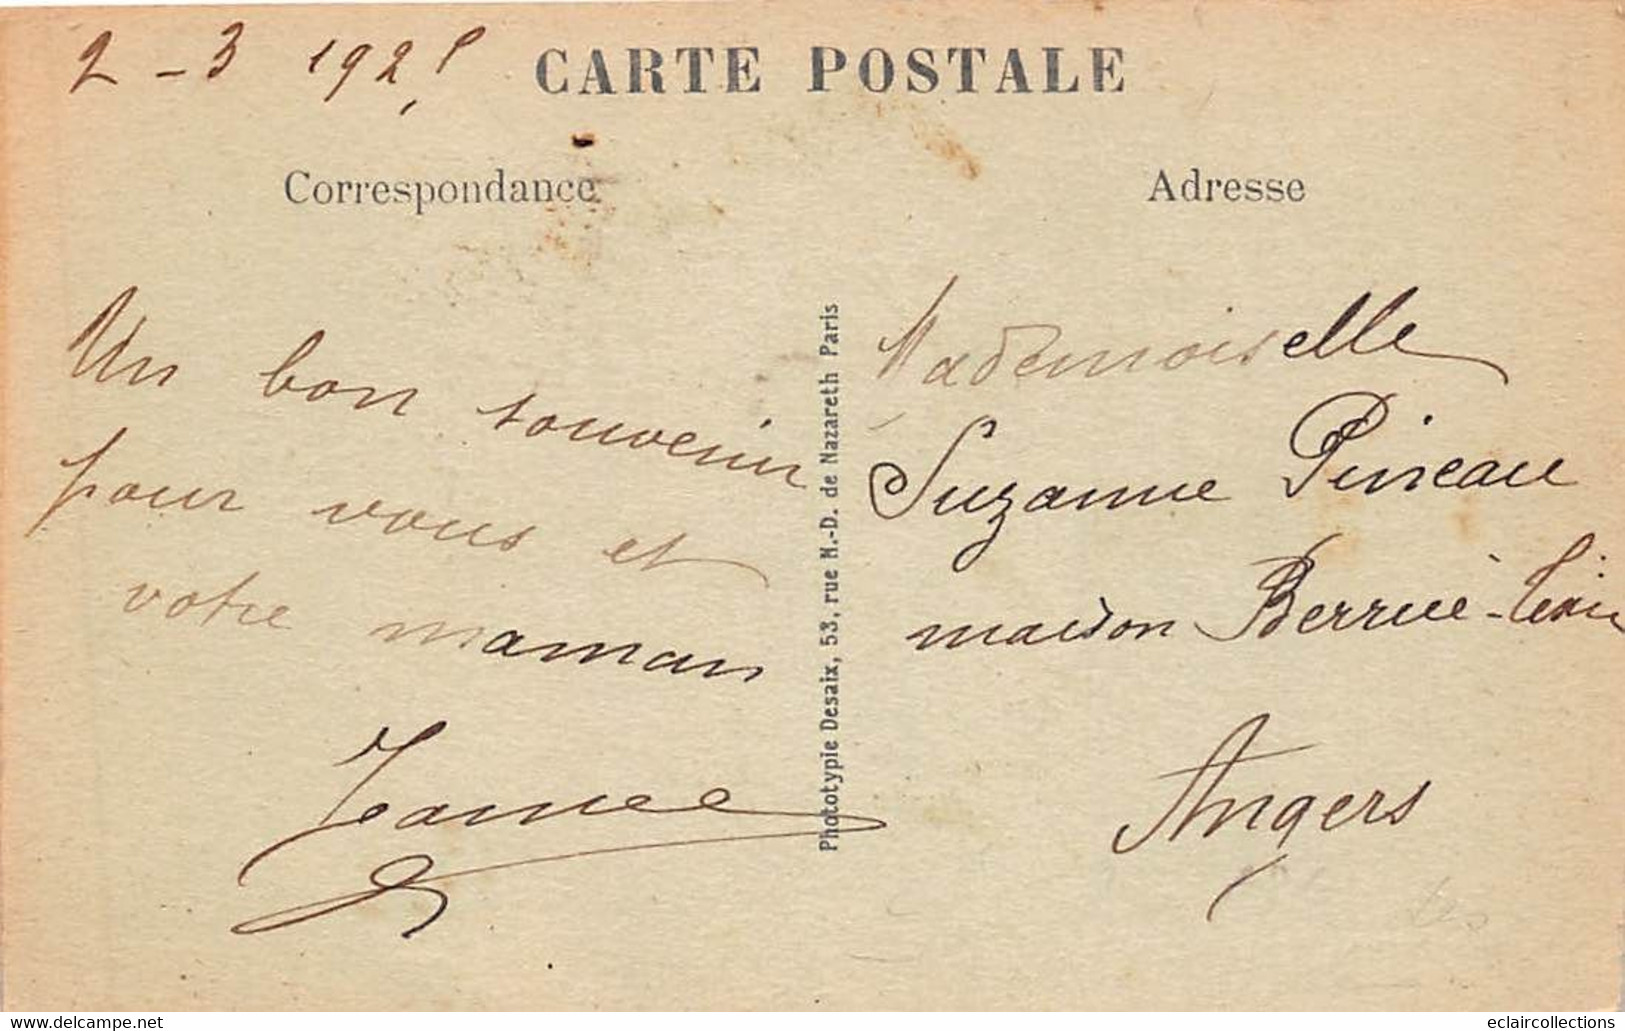 2-3 1925
CARTE POSTALE
Correspondance
Adresse
Un bon souvenir
pour vous et
votre maman
Jeanne
Phototypie Desaix, 53, rue N.-D. de Nazareth Paris
Mademoiselle
Suzanne Pineau
maison Berrué-
Angers
www.delcampe.net
eclaircollections